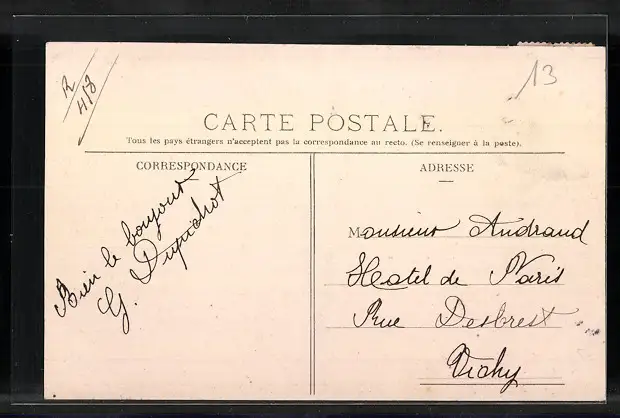 R
4/8
13
CARTE POSTALE.
Tous les pays étrangers n'acceptent pas la correspondance au recto. (Se renseigner à la poste).
CORRESPONDANCE
Bien le bonjour
G. Dupichot
ADRESSE
Monsieur Andraud
Hotel de Paris
Rue Desbrest
Vichy